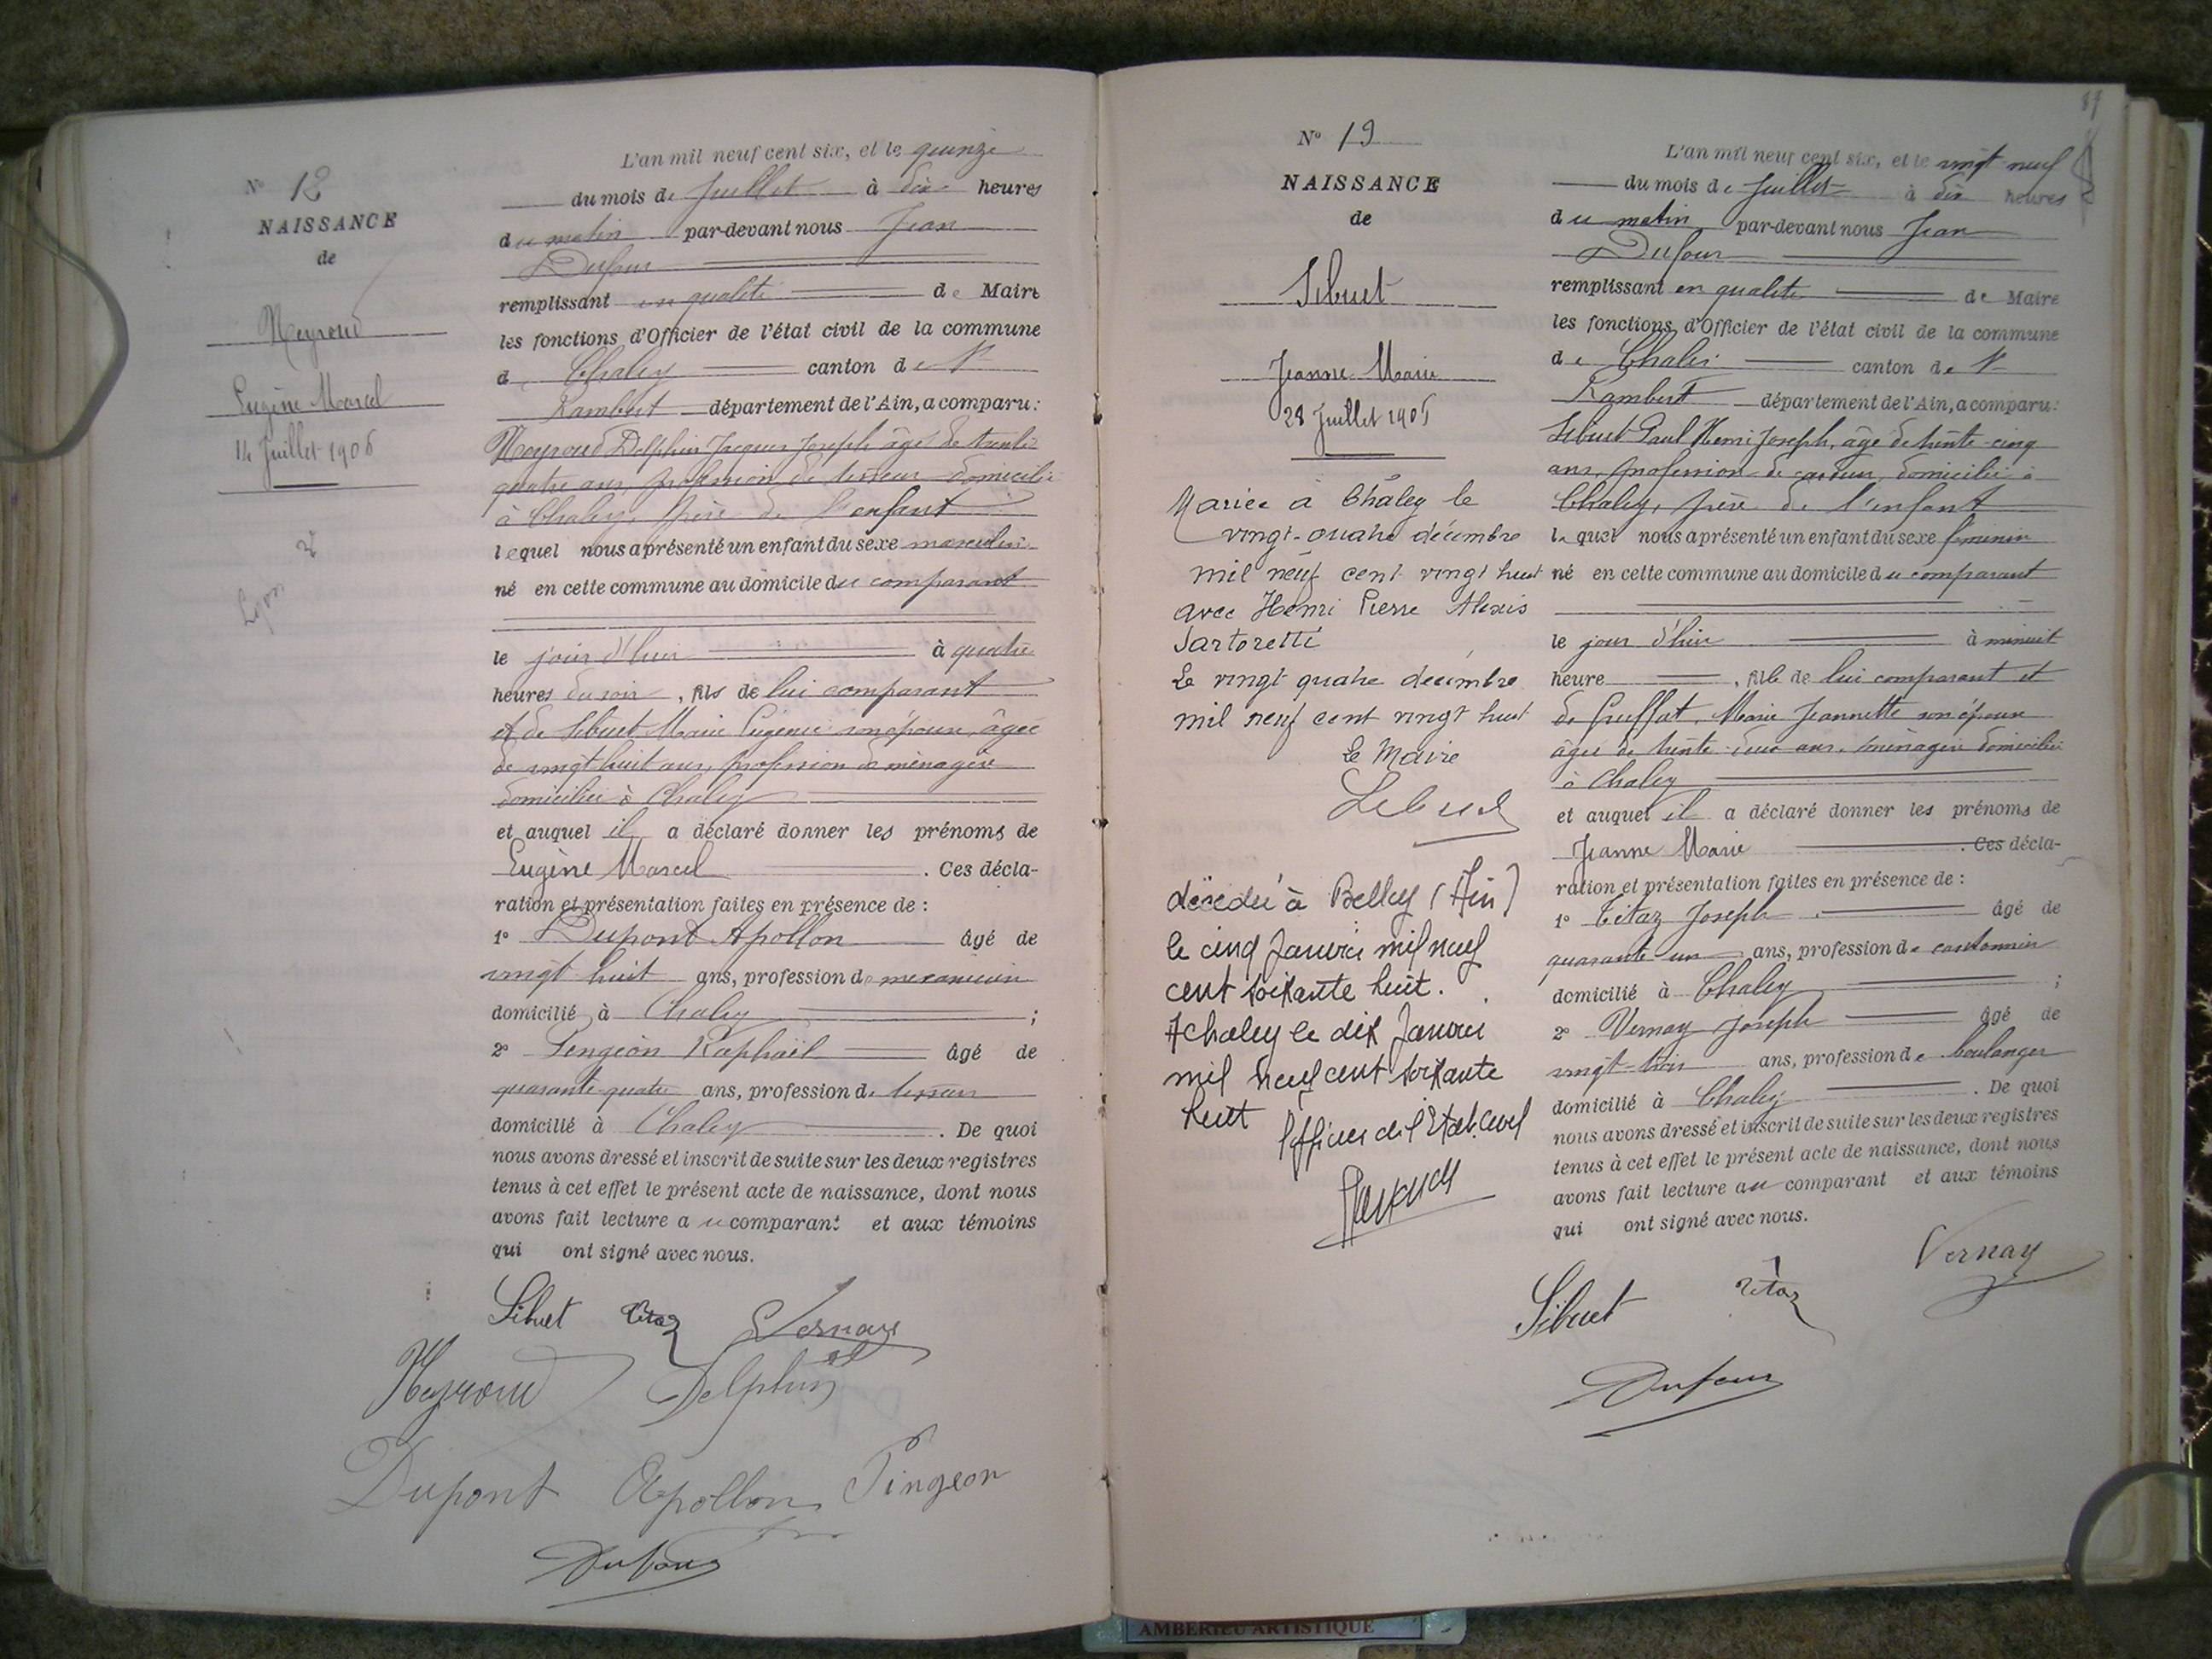 N° 12
NAISSANCE
de
Neyroud
Eugène Marcel
14 Juillet 1906
Lyon
L'an mil neuf cent six, et le quinze
du mois de Juillet à dix heures
du matin par-devant nous Jean
Dufour
remplissant en qualité de Maire
les fonctions d'Officier de l'état civil de la commune
de Chaley canton de St
Rambert département de l'Ain, a comparu :
Neyroud Delphin Jacques Joseph âgé de trente
quatre ans, profession de tisseur domicilié
à Chaley, père de l'enfant
lequel nous a présenté un enfant du sexe masculin
né en cette commune au domicile du comparant
le jour d'hier à quatre
heures du soir, fils de lui comparant
et de Sibuet Marie Eugénie son épouse, âgée
de vingt huit ans, profession de ménagère
domiciliée à Chaley
et auquel il a déclaré donner les prénoms de
Eugène Marcel. Ces décla-
ration et présentation faites en présence de :
1° Dupont Apollon âgé de
vingt huit ans, profession de mécanicien
domicilié à Chaley ;
2° Pingeon Raphaël âgé de
quarante-quatre ans, profession de tisseur
domicilié à Chaley. De quoi
nous avons dressé et inscrit de suite sur les deux registres
tenus à cet effet le présent acte de naissance, dont nous
avons fait lecture au comparant et aux témoins
qui ont signé avec nous.
Sibuet Titaz Vernay
Neyroud Delphin
Dupont Apollon Pingeon
Dufour
N° 13
NAISSANCE
de
Sibuet
Jeanne Marie
28 Juillet 1906
Mariée à Chaley le
vingt-quatre décembre
mil neuf cent vingt huit
avec Henri Pierre Alexis
Sartoretti
Le vingt quatre décembre
mil neuf cent vingt huit
Le Maire
Sibuet
décédée à Belley (Ain)
le cinq Janvier mil neuf
cent soixante huit.
A chaley le dix Janvier
mil neuf cent soixante
huit
l'officier de l'Etat. Civil
89
L'an mil neuf cent six, et le vingt neuf
du mois de Juillet à dix heures
du matin par-devant nous Jean
Dufour
remplissant en qualité de Maire
les fonctions d'Officier de l'état civil de la commune
de Chaley canton de St
Rambert département de l'Ain, a comparu :
Sibuet Paul Henri Joseph, âgé de trente-cinq
ans, profession de cardeur, domicilié à
Chaley, père de l'enfant
lequel nous a présenté un enfant du sexe féminin
né en cette commune au domicile du comparant
le jour d'hier à minuit
heure, fille de lui comparant et
de Gruffat, Marie Jeannette son épouse
âgée de trente-deux ans, ménagère domiciliée
à Chaley
et auquel il a déclaré donner les prénoms de
Jeanne Marie. Ces décla-
ration et présentation faites en présence de :
1° Titaz Joseph âgé de
quarante-un ans, profession de cantonnier
domicilié à Chaley ;
2° Vernay Joseph âgé de
vingt-trois ans, profession de boulanger
domicilié à Chaley. De quoi
nous avons dressé et inscrit de suite sur les deux registres
tenus à cet effet le présent acte de naissance, dont nous
avons fait lecture au comparant et aux témoins
qui ont signé avec nous.
Sibuet Titaz Vernay
Dufour
AMBERIEU ARTISTIQUE